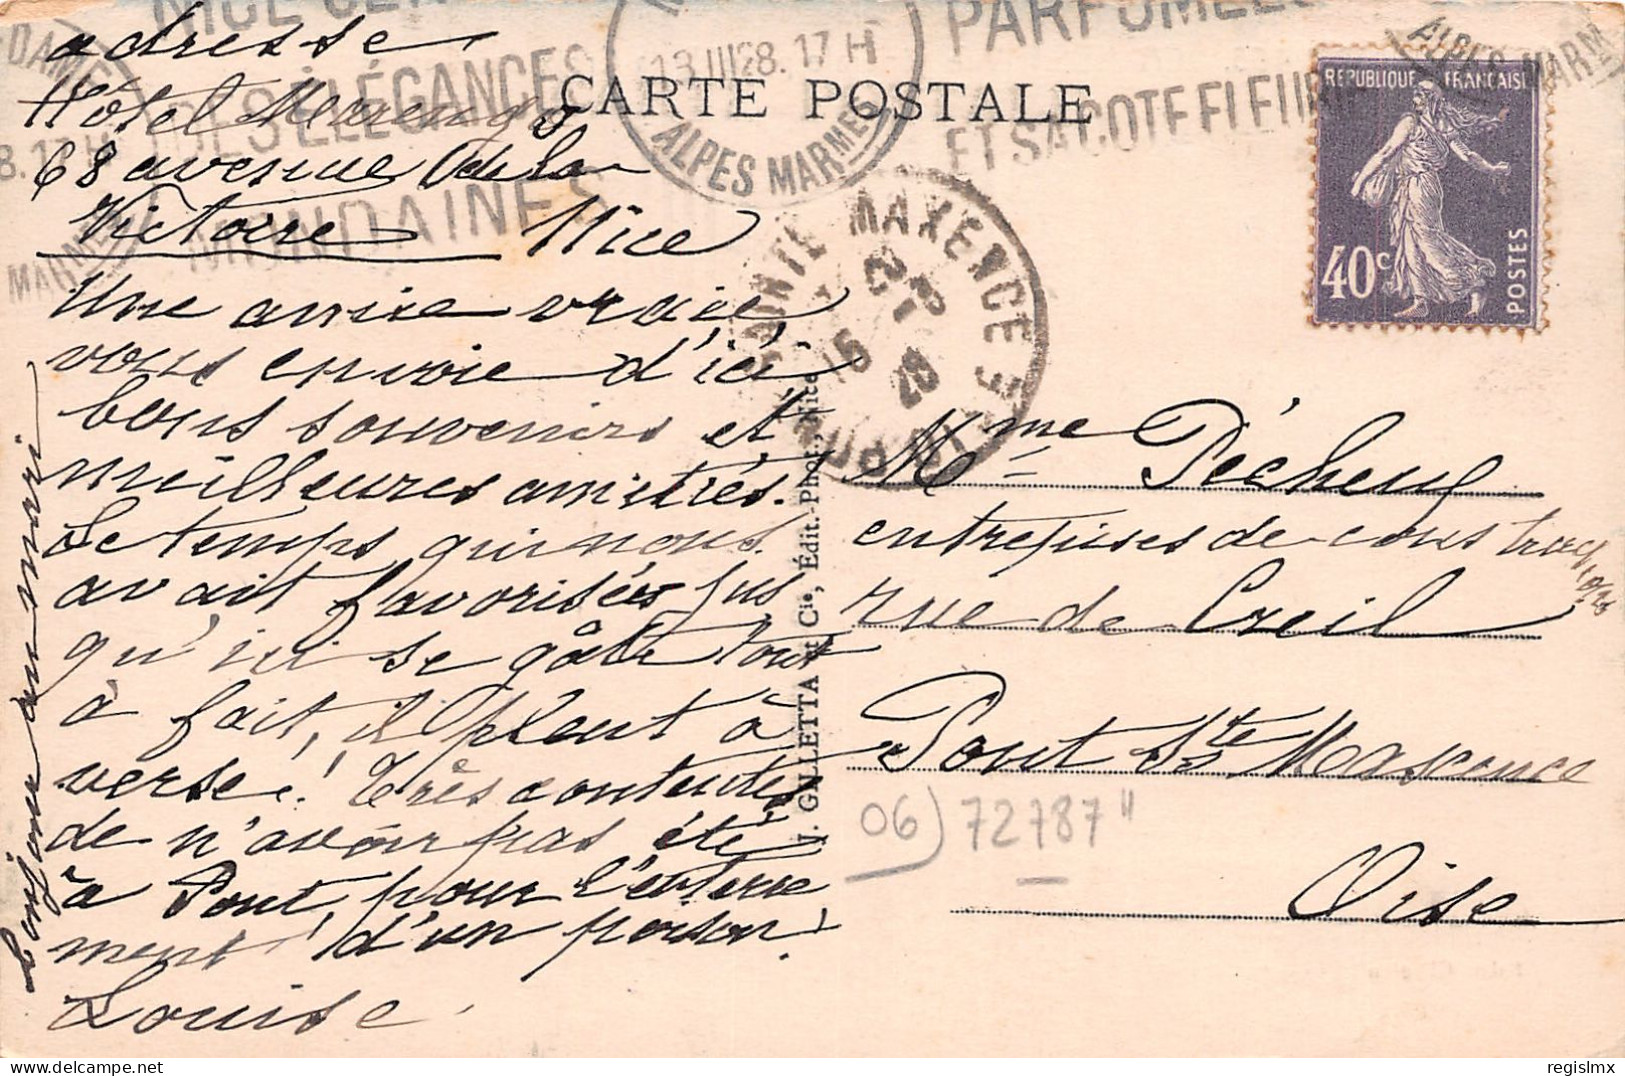 adresse
Hôtel Marengo
68 avenue de la
Victoire Nice
Une amie vraie
vous envoie d'ici
bons souvenirs et
meilleures amitiés.
Le temps qui nous
avait favorisées jus
qu'ici se gâte tout
à fait, il pleut à
verse! Très contentes
de n'avoir pas été
à Pont, pour l'enterre
ment d'un
Louise.
Bonjour au mari
CARTE POSTALE
J. GILLETTA et Cie, Édit.-Phot., Nice
Mme Pécheux
entreprises de construct
rue de Creil
Pont Ste Maxence
Oise
06) 72787"
NICE
DES ÉLÉGANCES
MONDAINES
13 III 28. 17 H
ALPES MARMES
PARFUMEE
ET SA COTE FLEURIE
ALPES MARM
PONT STE MAXENCE
15
28
RÉPUBLIQUE FRANÇAISE
40c
POSTES
regislmx